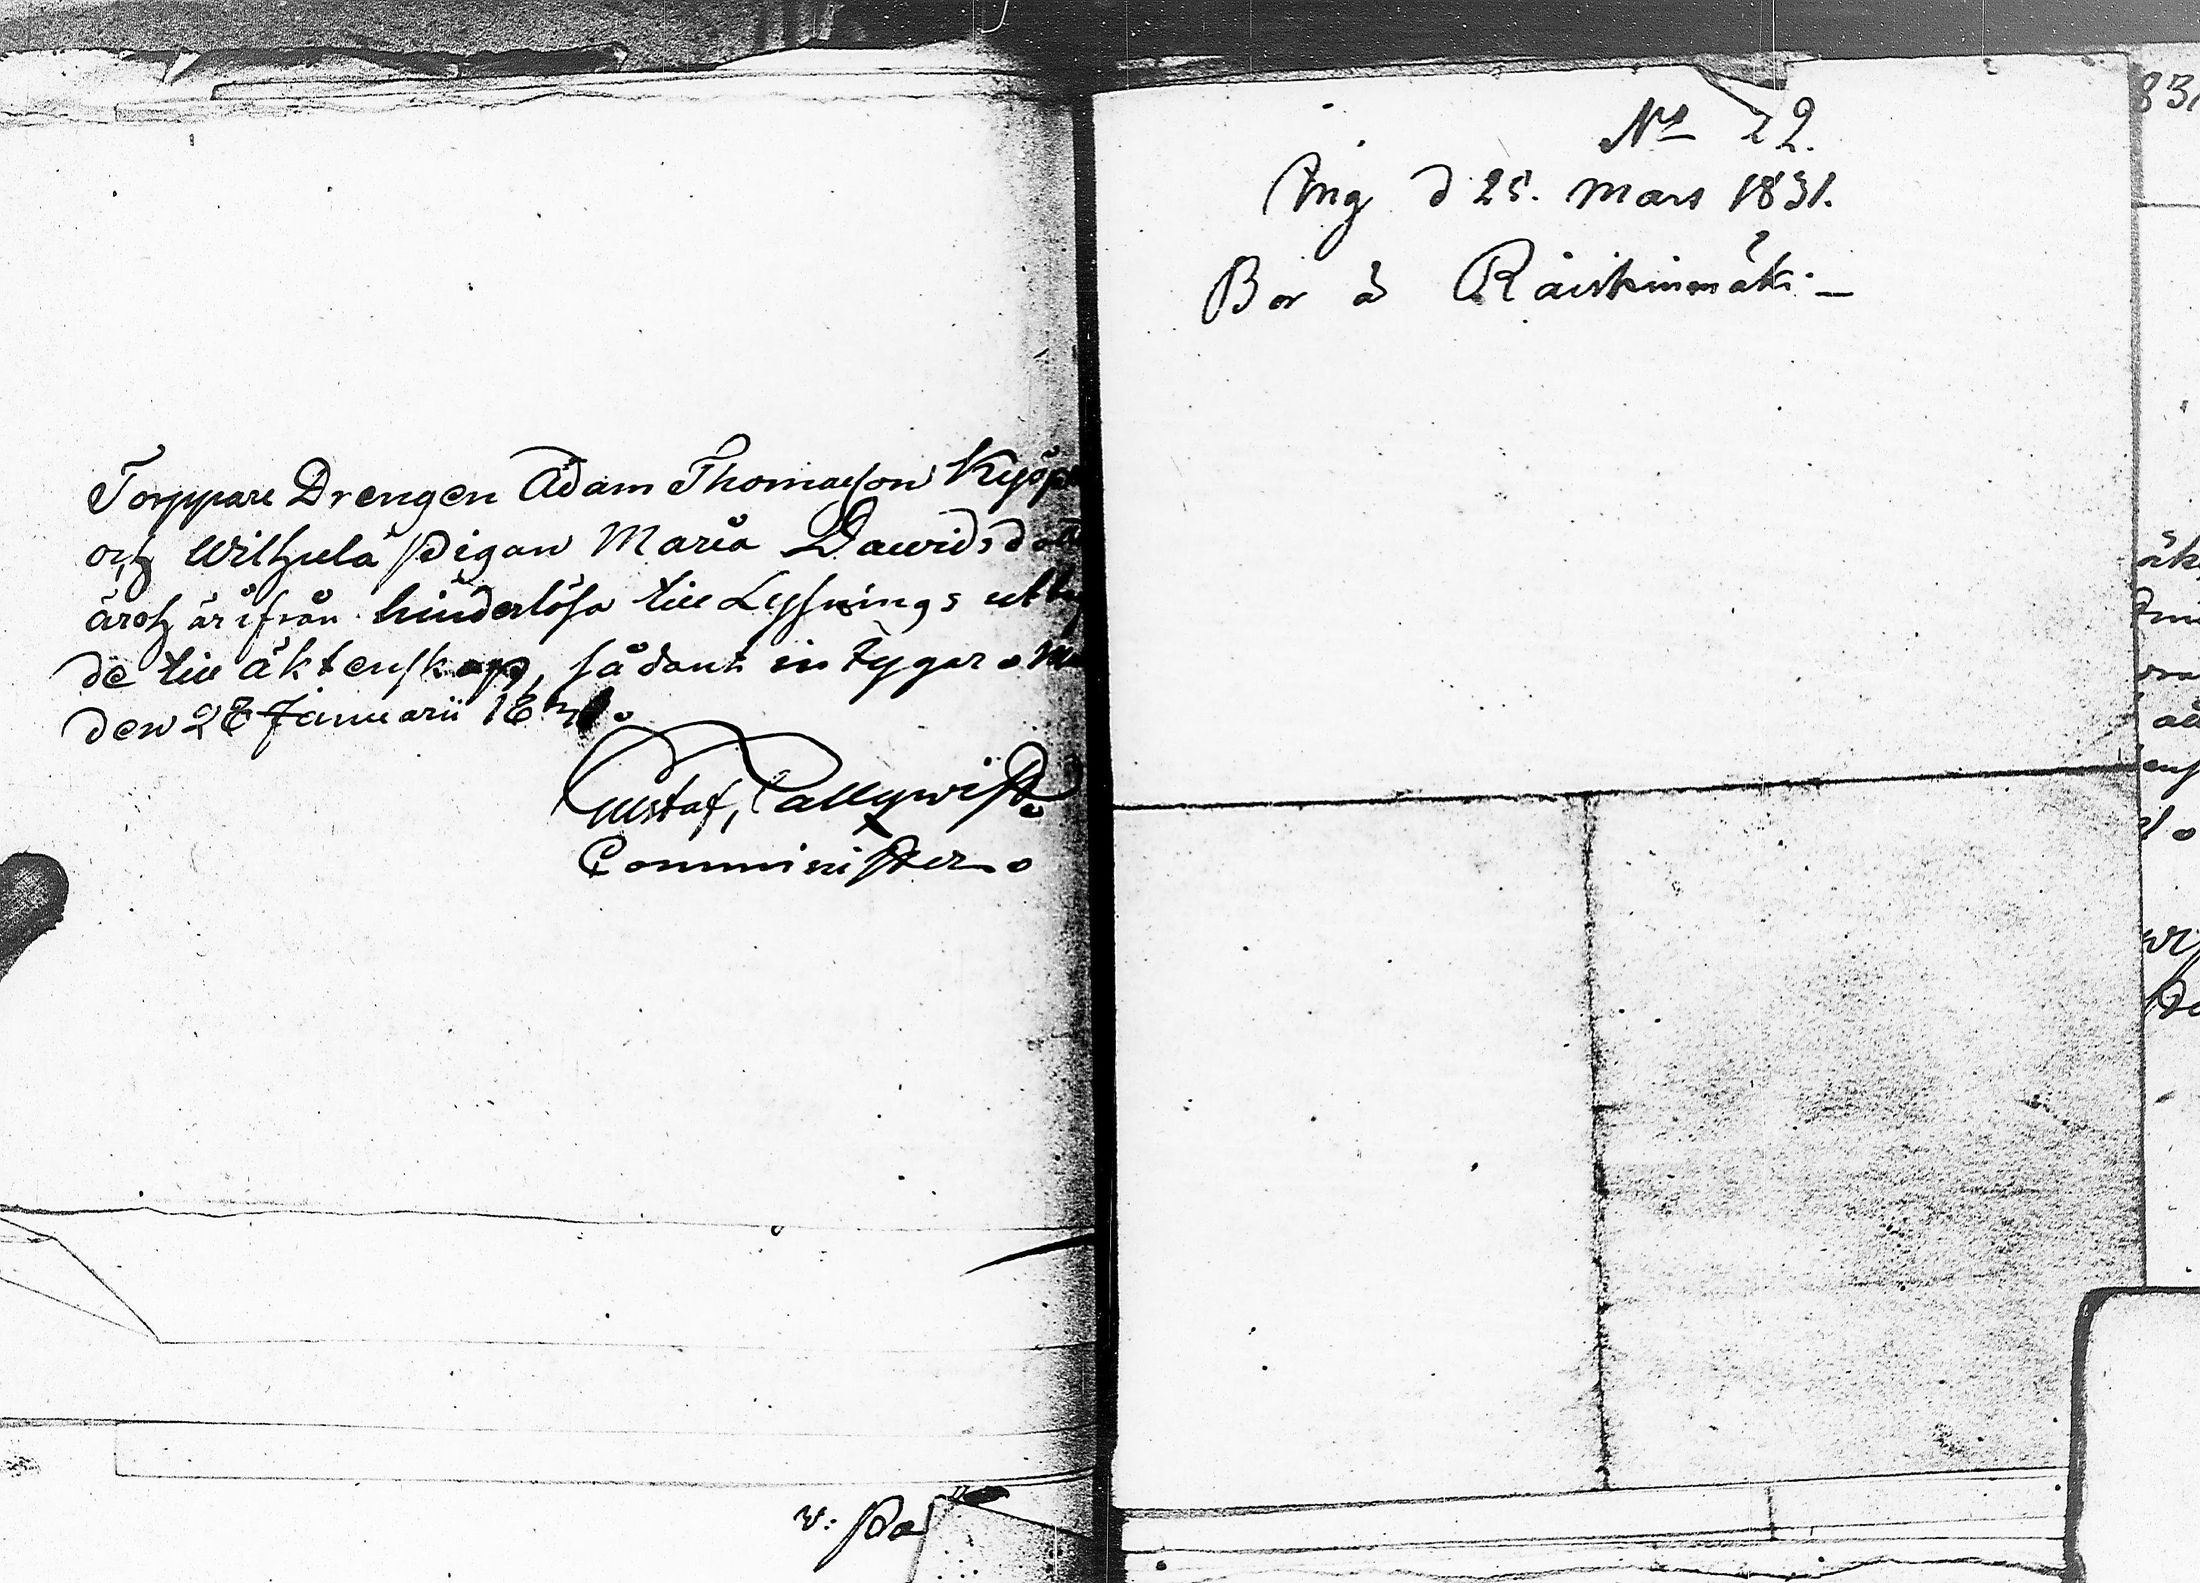 Torppare Drengen Adam Thomasson Kyöp
och Wilhula Pigan Maria Dawidsdott
äro härifrån hinderlösa till Lysnings utta
de till äktenskap, sådant intygar. M
den 28 Januarii 1831.
Gustaf, Pallqwist.
Comminister.
v: Pa
No 22.
Ing d 25. Mars 1831.
Bor å Räiskinmäki. —
831
äk